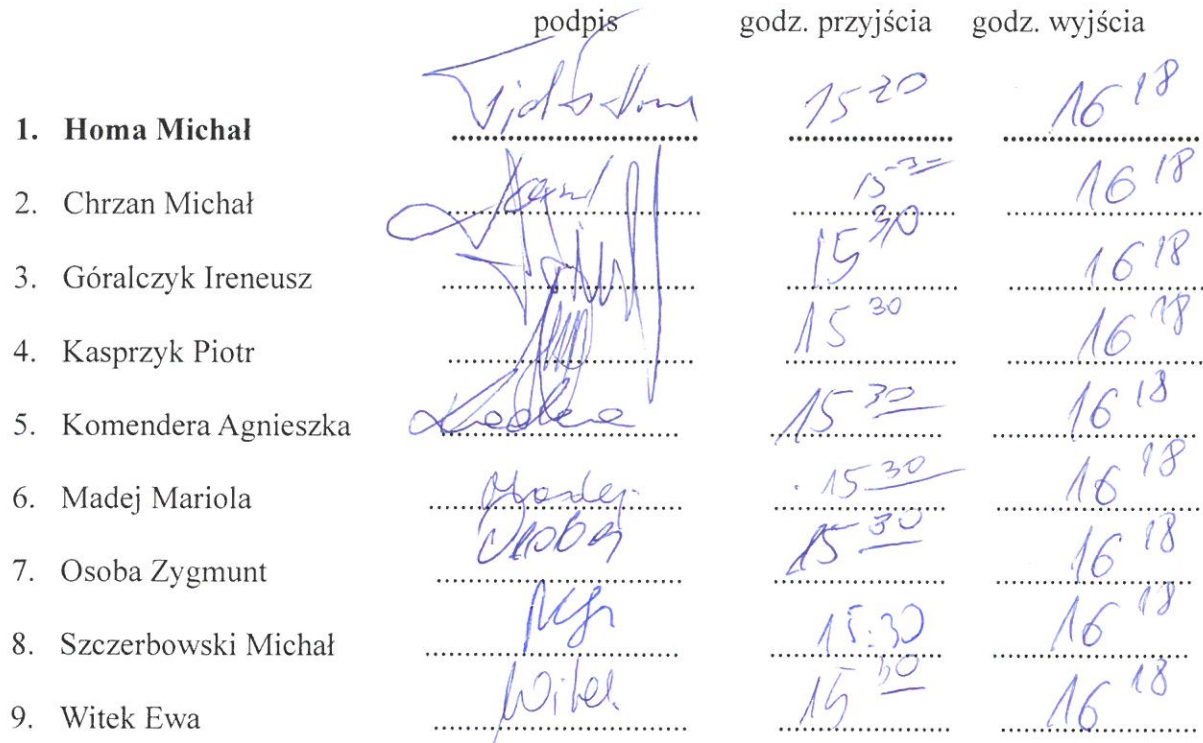 podpis godz. przyjścia godz. wyjścia
1. Homa Michał 15 20 16 18
2. Chrzan Michał 15 30 16 18
3. Góralczyk Ireneusz 15 30 16 18
4. Kasprzyk Piotr 15 30 16 18
5. Komendera Agnieszka 15 30 16 18
6. Madej Mariola Madej 15 30 16 18
7. Osoba Zygmunt Osoba 15 30 16 18
8. Szczerbowski Michał 15:30 16 18
9. Witek Ewa Witek 15 30 16 18